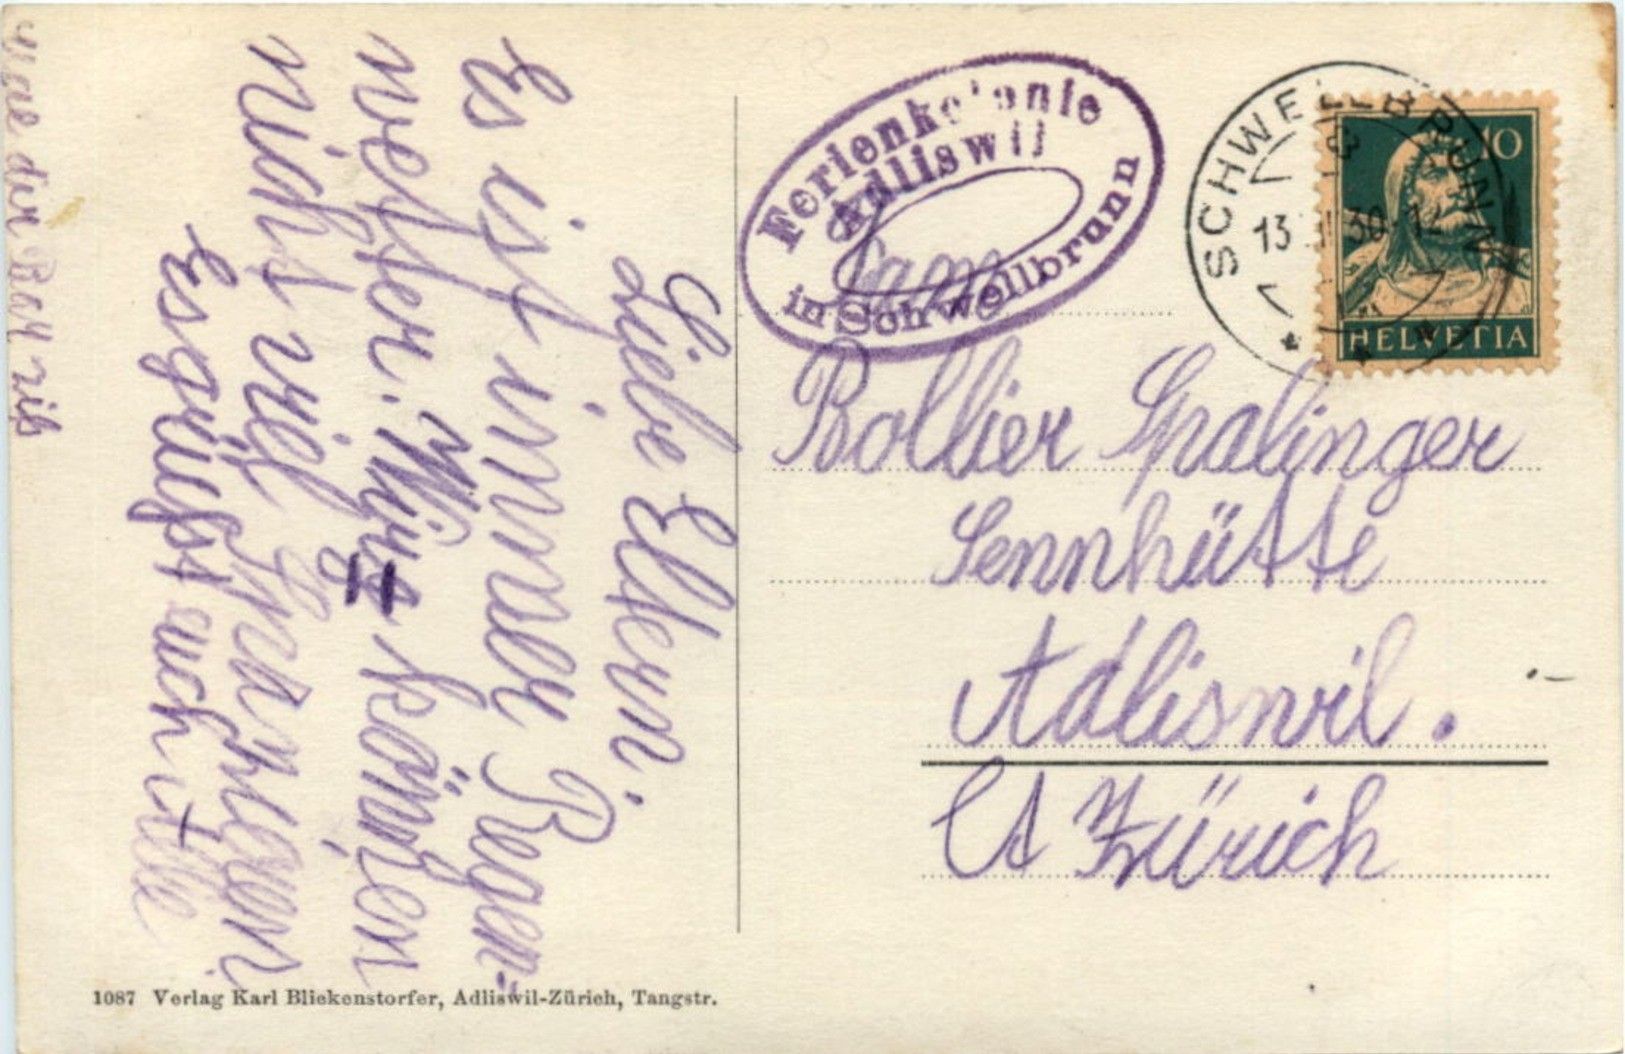 Liebe Eltern.
Es ist immer Regen-
wetter. Wir können
nicht viel spazieren
Es grüsst euch alle
Ferienkolonie
Adliswil
in Schwellbrunn
Fam
Bollier Spalinger
Sennhütte
Adliswil.
Ct Zürich
SCHWELLBRUNN
13
30
10
HELVETIA
1087 Verlag Karl Bliekenstorfer, Adliswil-Zürich, Tangstr.